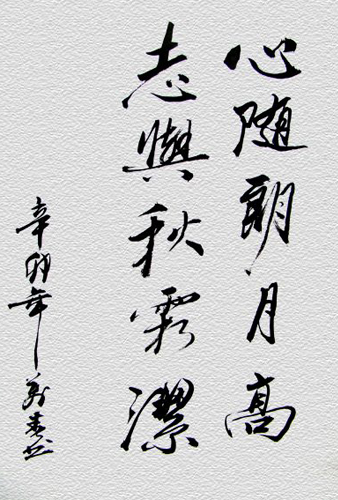 心随朗月高
志與秋霜潔
辛卯年